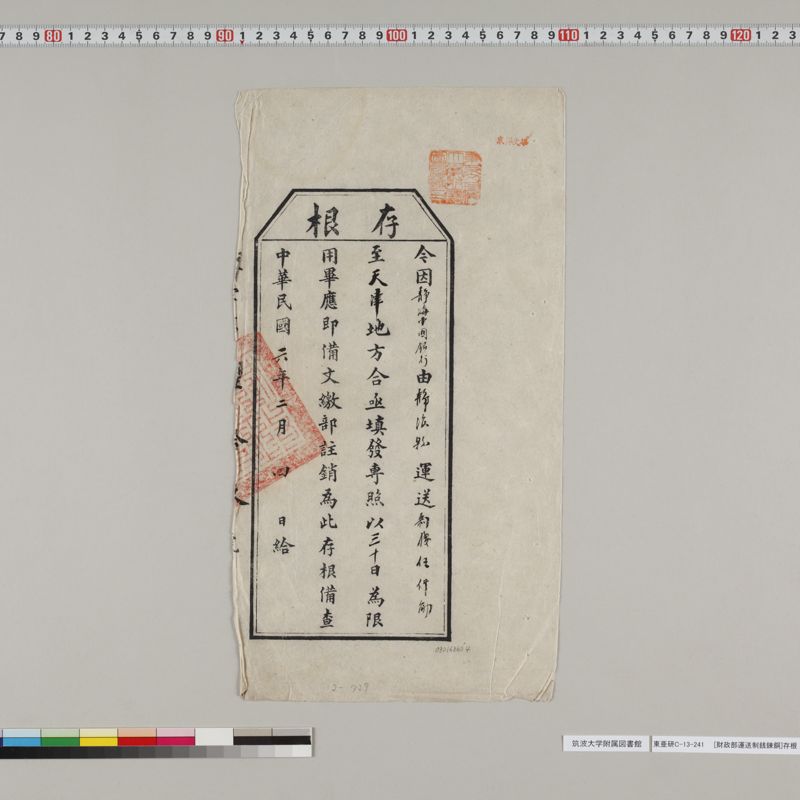 7 8 9 80 1 2 3 4 5 6 7 8 9 90 1 2 3 4 5 6 7 8 9 100 1 2 3 4 5 6 7 8 9 110 1 2 3 4 5 6 7 8 9 120 1 2 3
存根
今因靜海中國銀行由靜海縣運送制錢伍仟
至天津地方合亟填發專照以三十日為限
用畢應即備文繳部註銷為此存根備查
中華民國六年二月四日給
2-729
筑波大学附属図書館
東亜研C-13-241 [財政部運送制銭錬銅]存根